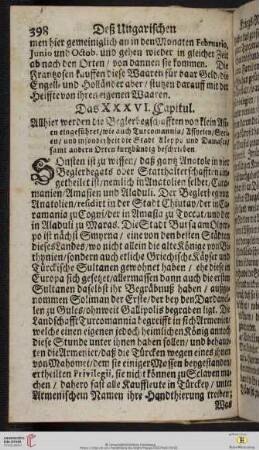 398 Deß Ungarischen
men hier gemeiniglich an in den Monaten Februario,
Junio und Octob. und gehen wieder in gleicher Zeit
ab nach den Orten / von dannen sie kommen. Die
Frantzosen kauffen diese Waaren für baar Geld, die
Engell- und Holländer aber / stutzen darauf mit der
Helffte von ihren eigenen Waaren.
Das XXXVI. Capitul.
Allhier werden die Beglerbegschafften von klein Asi-
en eingeführet / wie auch Turcomannia / Assyrien / Syri-
en / und insonderheit die Stadt Aleppo und Damasco /
samt andern Orten kurtzbündig beschrieben
SOnsten ist zu wissen / daß gantz Anatole in vier
Beglerbegats oder Statthalterschafften ein-
getheilet ist / nemlich in Anatolien selber, Cara-
manien in Amasien und Aladuli. Der Beglerbeg von
Anatolien / residirt in der Stadt Chiutay, der in Ca-
ramania zu Cogni / der in Amasia zu Toccat / und der
in Aladuli zu Maras. Die Stadt Bursa am Olym-
po ist nächst Smyrna / eine von den besten Städten
dieses Landes / wo nicht allein die alte Könige von Bi-
thynien / sondern auch etliche Griechische Käyser und
Türckische Sultanen gewohnet haben / ehe diese in
Europa sich gesetzet / allermassen dann auch die ersten
Sultanen daselbst ihr Begräbnuß haben / außge-
nommen Soliman der Erste / der bey den Dardanel-
len zu Gules / ohnweit Gallipolis begraben ligt. Die
Landschafft Turcomannia begreifft in sich Armenien /
welche einen eigenen jedoch heimlichen König annoch
diese Stunde unter ihnen haben sollen / und behaup-
ten die Armenier / daß die Türcken wegen eines ihnen
von Mahomet / dem sie einiger Massen beygestanden
ertheilten Privilegii, sie nicht können zu Sclaven ma-
chen / dahero fast alle Kauffleute in Türckey / unter
Armenischen Namen ihre Handthierung treiben;
Was